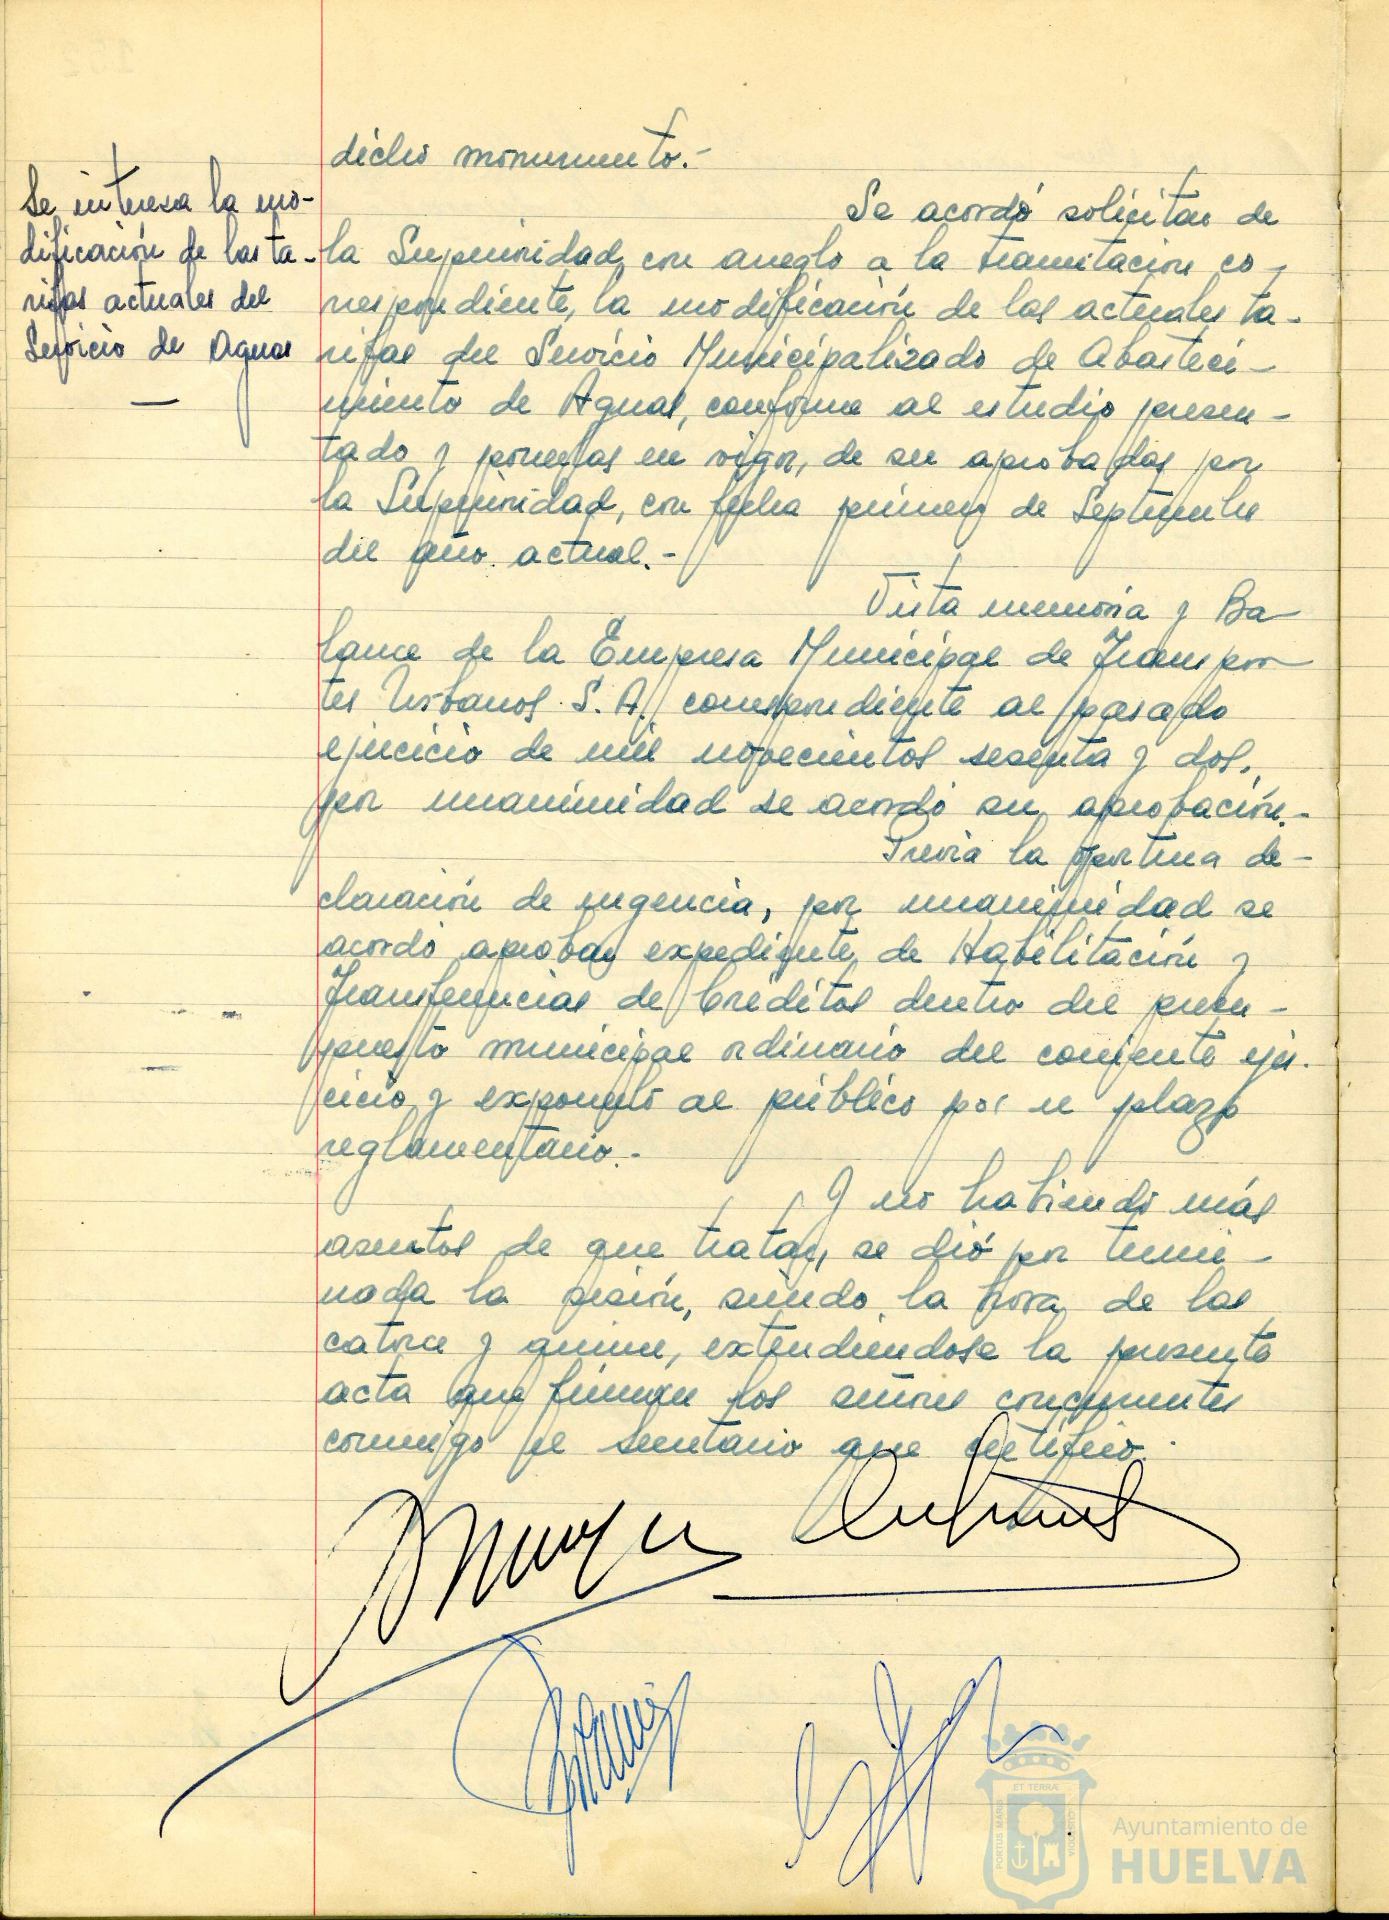 dicho monumento.-
Se interesa la mo-
dificación de las ta-
rifas actuales del
Servicio de Aguas
Se acordó solicitar de
la Superioridad, con arreglo a la tramitación co-
rrespondiente, la modificación de las actuales ta-
rifas del Servicio Municipalizado de Abasteci-
miento de Aguas, conforme al estudio presen-
tado y ponerlas en vigor, de ser aprobadas por
la Superioridad, con fecha primero de Septiembre
del año actual.-
Vista memoria y Ba-
lance de la Empresa Municipal de Transpor-
tes Urbanos S.A. correspondiente al pasado
ejercicio de mil novecientos sesenta y dos,
por unanimidad se acordó su aprobación.-
Previa la oportuna de-
claración de urgencia, por unanimidad se
acordó aprobar expediente de Habilitación y
Transferencias de Créditos dentro del presu-
puesto municipal ordinario del corriente ejer-
cicio y exponerlo al público por el plazo
reglamentario.-
Y no habiendo más
asuntos de que tratar, se dió por termi-
nada la sesión, siendo la hora de las
catorce y quince, extendiéndose la presente
acta que firman los señores concurrentes
conmigo el secretario que certifico.
PORTUS MARIS ET TERRAE CUSTODIA
Ayuntamiento de
HUELVA